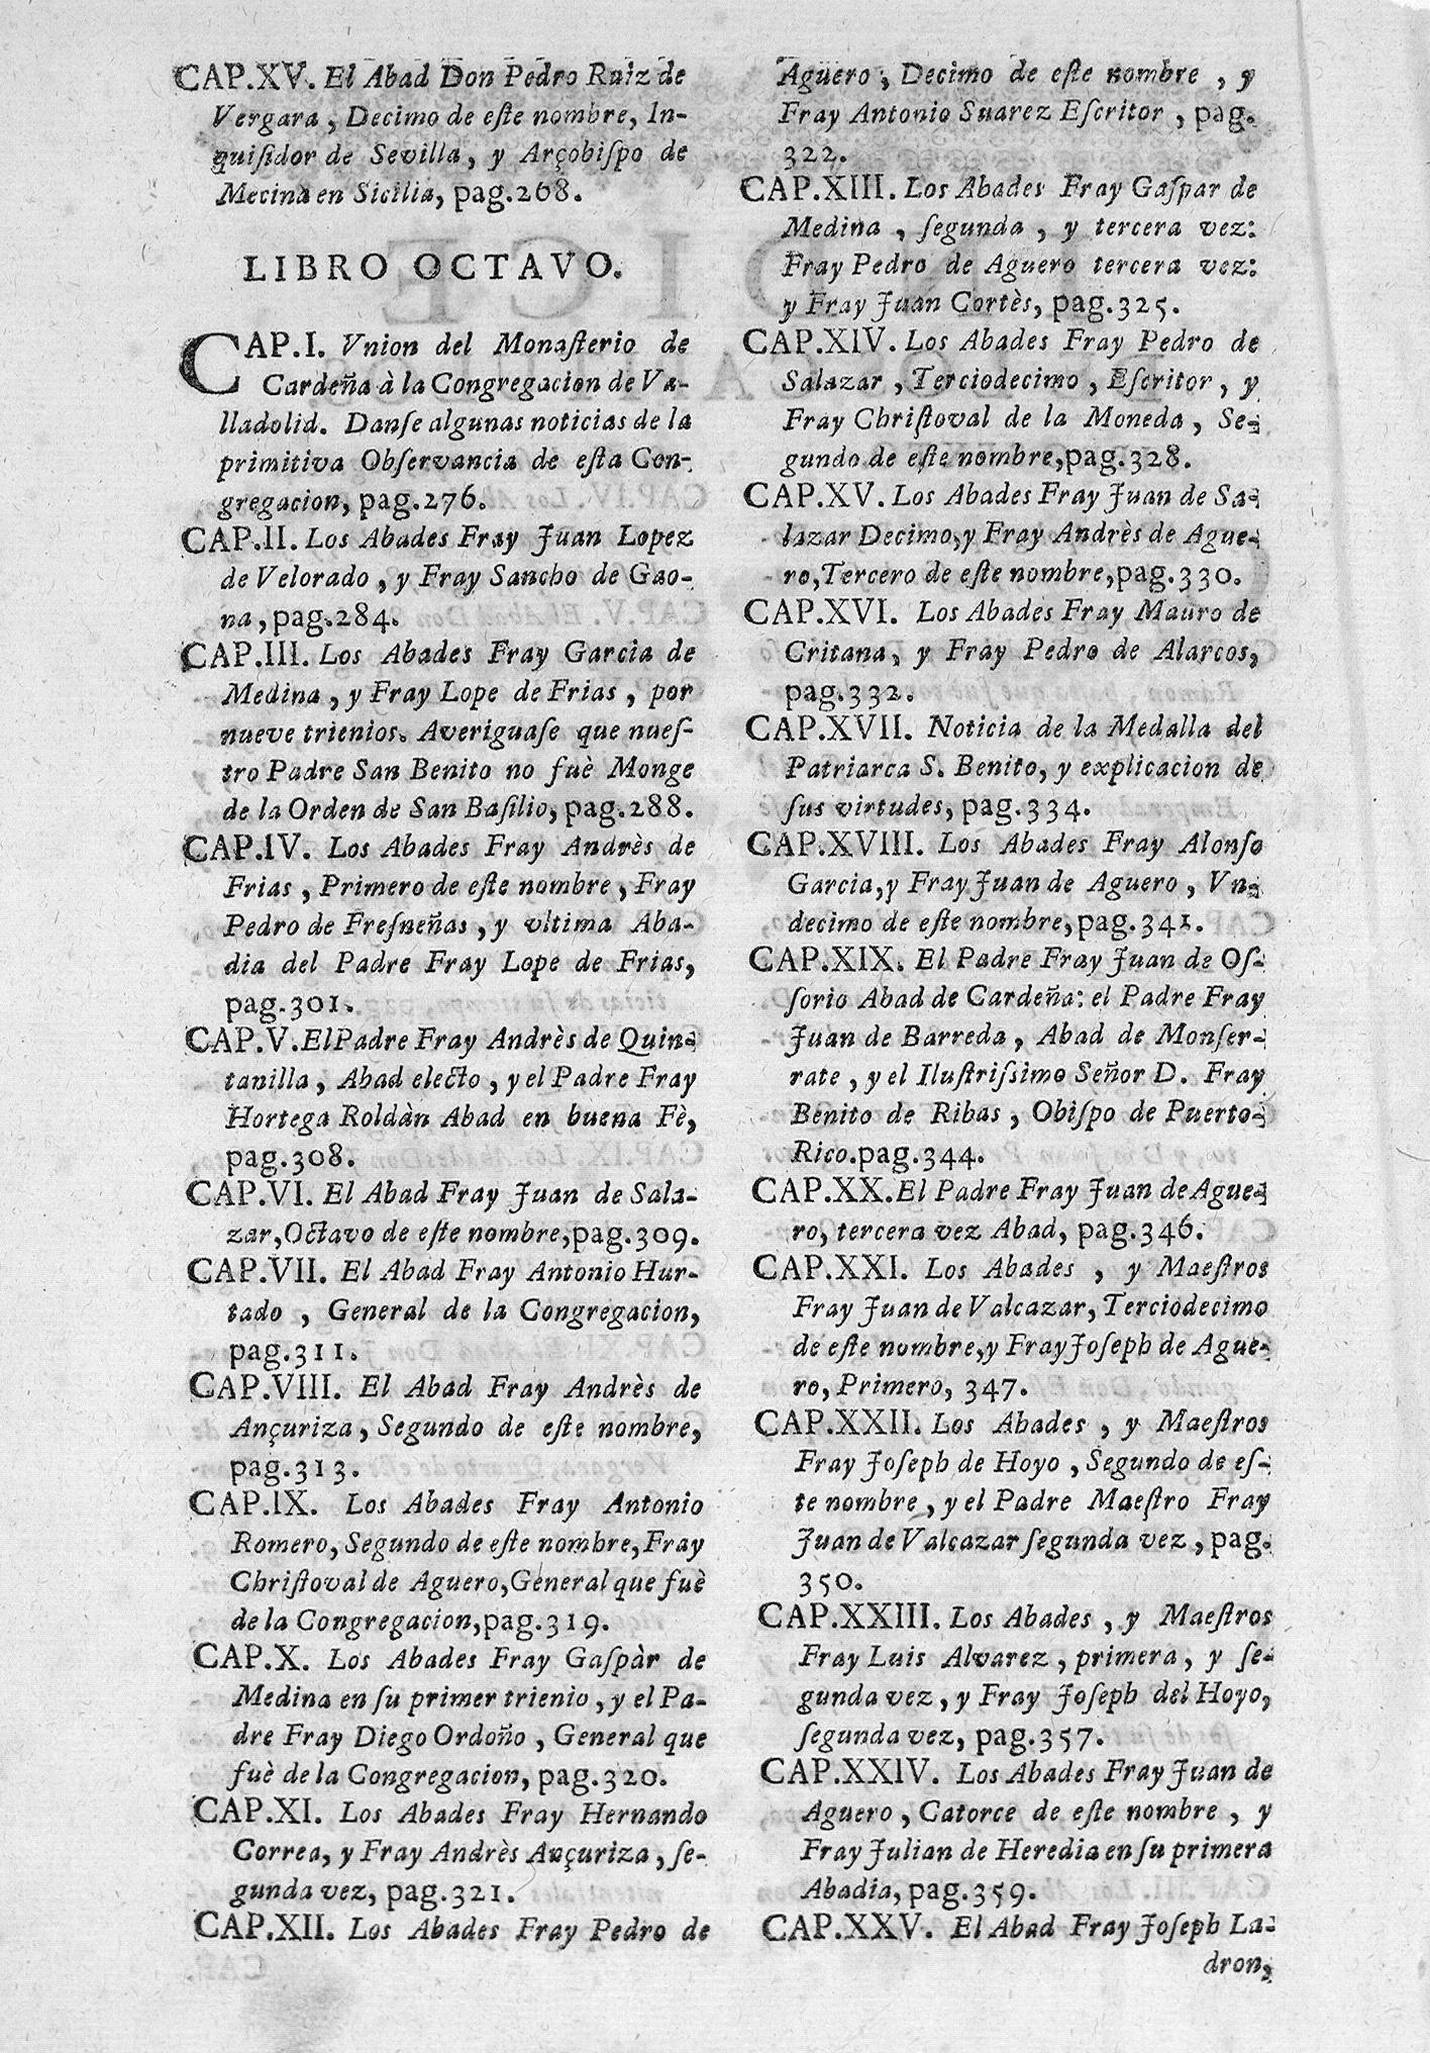 CAP.XV. El Abad Don Pedro Ruiz de
Vergara, Decimo de eſte nombre, In-
quiſidor de Sevilla, y Arçobiſpo de
Mecina en Sicilia, pag.268.
LIBRO OCTAVO.
CAP.I. Vnion del Monaſterio de
Cardeña à la Congregacion de Va-
lladolid. Danſe algunas noticias de la
primitiva Obſervancia de eſta Con-
gregacion, pag.276.
CAP.II. Los Abades Fray Juan Lopez
de Velorado, y Fray Sancho de Gao-
na, pag.284.
CAP.III. Los Abades Fray Garcia de
Medina, y Fray Lope de Frias, por
nueve trienios. Averiguaſe que nueſ-
tro Padre San Benito no fuè Monge
de la Orden de San Baſilio, pag.288.
CAP.IV. Los Abades Fray Andrès de
Frias, Primero de eſte nombre, Fray
Pedro de Freſneñas, y vltima Aba-
dia del Padre Fray Lope de Frias,
pag.301.
CAP.V. El Padre Fray Andrès de Quin-
tanilla, Abad electo, y el Padre Fray
Hortega Roldàn Abad en buena Fè,
pag.308.
CAP.VI. El Abad Fray Juan de Sala-
zar, Octavo de eſte nombre, pag.309.
CAP.VII. El Abad Fray Antonio Hur-
tado, General de la Congregacion,
pag.311.
CAP.VIII. El Abad Fray Andrès de
Ançuriza, Segundo de eſte nombre,
pag.313.
CAP.IX. Los Abades Fray Antonio
Romero, Segundo de eſte nombre, Fray
Chriſtoval de Aguero, General que fuè
de la Congregacion, pag.319.
CAP.X. Los Abades Fray Gaſpàr de
Medina en ſu primer trienio, y el Pa-
dre Fray Diego Ordoño, General que
fuè de la Congregacion, pag.320.
CAP.XI. Los Abades Fray Hernando
Correa, y Fray Andrès Ançuriza, ſe-
gunda vez, pag.321.
CAP.XII. Los Abades Fray Pedro de
Aguero, Decimo de eſte nombre, y
Fray Antonio Suarez Eſcritor, pag.
322.
CAP.XIII. Los Abades Fray Gaſpar de
Medina, ſegunda, y tercera vez:
Fray Pedro de Aguero tercera vez:
y Fray Juan Cortès, pag.325.
CAP.XIV. Los Abades Fray Pedro de
Salazar, Terciodecimo, Eſcritor, y
Fray Chriſtoval de la Moneda, Se-
gundo de eſte nombre, pag.328.
CAP.XV. Los Abades Fray Juan de Sa-
lazar Decimo, y Fray Andrès de Ague-
ro, Tercero de eſte nombre, pag.330.
CAP.XVI. Los Abades Fray Mauro de
Critana, y Fray Pedro de Alarcos,
pag.332.
CAP.XVII. Noticia de la Medalla del
Patriarca S. Benito, y explicacion de
ſus virtudes, pag.334.
CAP.XVIII. Los Abades Fray Alonſo
Garcia, y Fray Juan de Aguero, Vn-
decimo de eſte nombre, pag.341.
CAP.XIX. El Padre Fray Juan de Oſ-
ſorio Abad de Cardeña: el Padre Fray
Juan de Barreda, Abad de Monſer-
rate, y el Iluſtriſsimo Señor D. Fray
Benito de Ribas, Obiſpo de Puerto-
Rico. pag.344.
CAP.XX. El Padre Fray Juan de Ague-
ro, tercera vez Abad, pag.346.
CAP.XXI. Los Abades, y Maeſtros
Fray Juan de Valcazar, Terciodecimo
de eſte nombre, y Fray Joſeph de Ague-
ro, Primero, 347.
CAP.XXII. Los Abades, y Maeſtros
Fray Joſeph de Hoyo, Segundo de eſ-
te nombre, y el Padre Maeſtro Fray
Juan de Valcazar ſegunda vez, pag.
350.
CAP.XXIII. Los Abades, y Maeſtros
Fray Luis Alvarez, primera, y ſe-
gunda vez, y Fray Joſeph del Hoyo,
ſegunda vez, pag.357.
CAP.XXIV. Los Abades Fray Juan de
Aguero, Catorce de eſte nombre, y
Fray Julian de Heredia en ſu primera
Abadia, pag.359.
CAP.XXV. El Abad Fray Joſeph La-
dron,